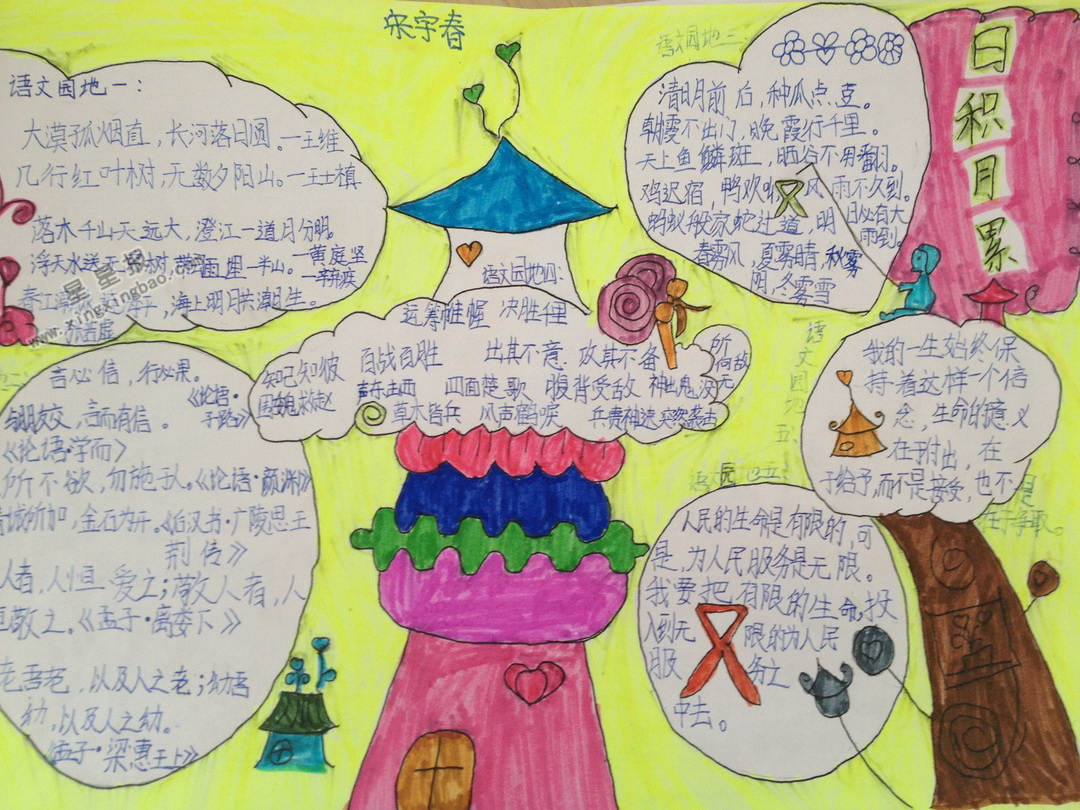 宋宇春
日积月累
语文园地一：
大漠孤烟直，长河落日圆。一王维
几行红叶树，无数夕阳山。一王士禛
落木千山天远大，澄江一道月分明。
一黄庭坚
浮天水送无 树，带雨 埋一半山。
一辛弃疾
春江潮 海平，海上明月共潮生。
张若虚
星星报
www.xingxingbao.com
语文园地三：
清明前后，种瓜点豆。
朝霞不出门，晚霞行千里。
天上鱼鳞斑，晒谷不用翻。
鸡迟宿，鸭欢 ，风雨不久到。
蚂蚁般家蛇过道，明日必有大
雨到。
春雾风，夏雾晴，秋雾
阴，冬雾雪
语文园地四：
运筹帷幄 决胜千里
知己知彼 百战百胜 出其不意 攻其不备 所向无敌
声东击西 四面楚歌 腹背受敌 神出鬼没
围魏救赵 草木皆兵 风声鹤唳 兵贵神速 突然袭击
言必信，行必果。
《论语·子路》
与朋友交，言而有信。
《论语·学而》
所不欲，勿施于人。《论语·颜渊》
诚所加，金石为开。《后汉书·广陵思王
荆传》
人者，人恒爱之；敬人者，人
恒敬之。《孟子·离娄下》
老吾老，以及人之老；幼吾
幼，以及人之幼。
《孟子·梁惠王上》
语文园地五：
我的一生始终保
持着这样一个信
念，生命的意义
在于付出，在
于给予，而不是接受，也不是
在于争取。
语文园地五：
人民的生命是有限的，可
是，为人民服务是无限。
我要把有限的生命，投
入到无限的为人民
服务之
中去。